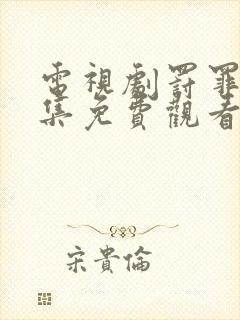 電視劇罰罪
集免費觀看
宋貴倫